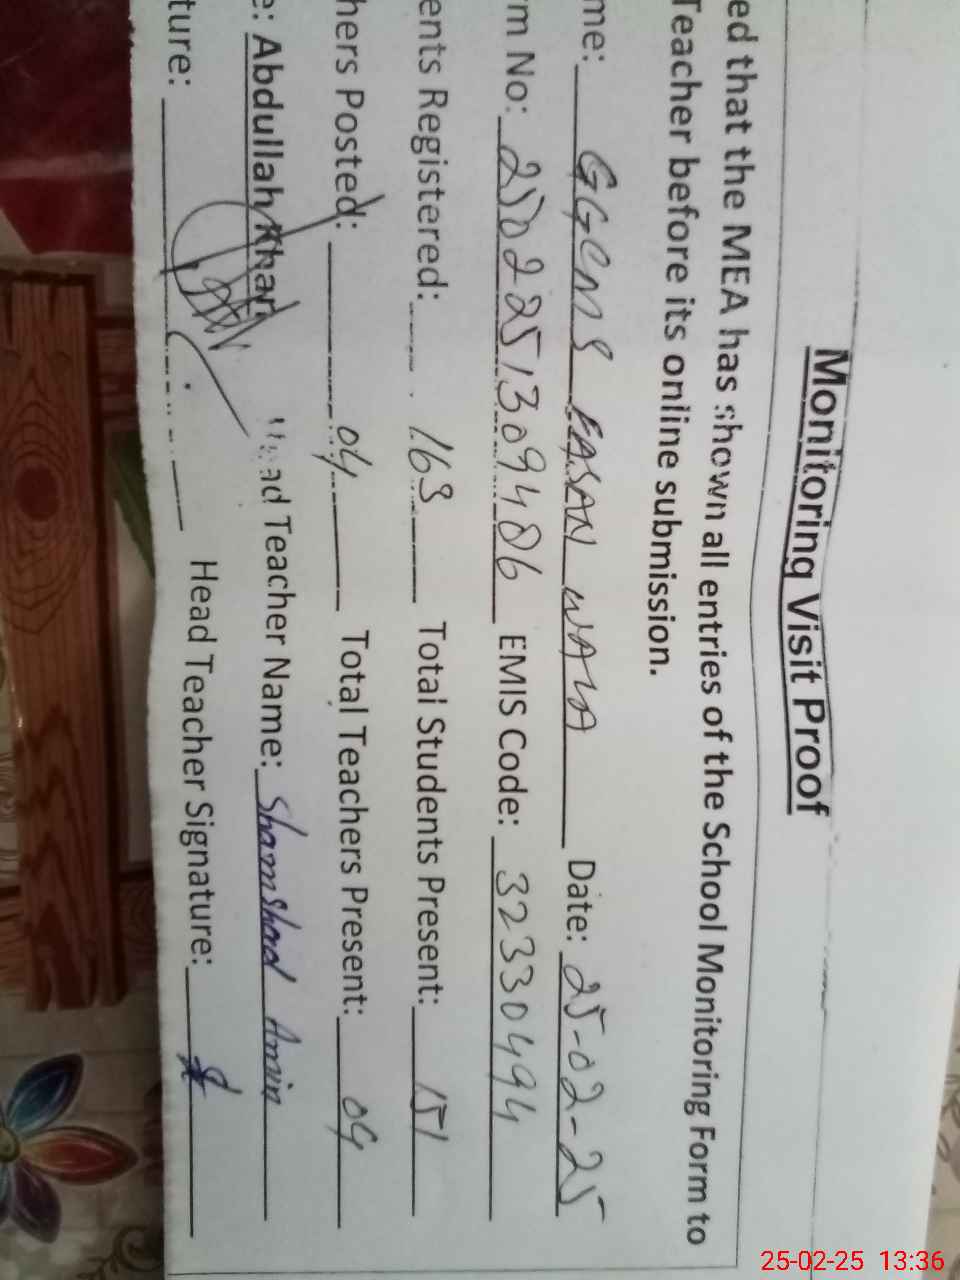 Monitoring Visit Proof
ed that the MEA has shown all entries of the School Monitoring Form to
Teacher before its online submission.
me: GGCMS EASAN WALA Date: 25-02-25
rm No: 2502251309486 EMIS Code: 32330494
ents Registered: 168 Total Students Present: 151
hers Posted: 04 Total Teachers Present: 04
e: Abdullah Khan Head Teacher Name: Shamshad Amin
ture: Head Teacher Signature:
25-02-25 13:36